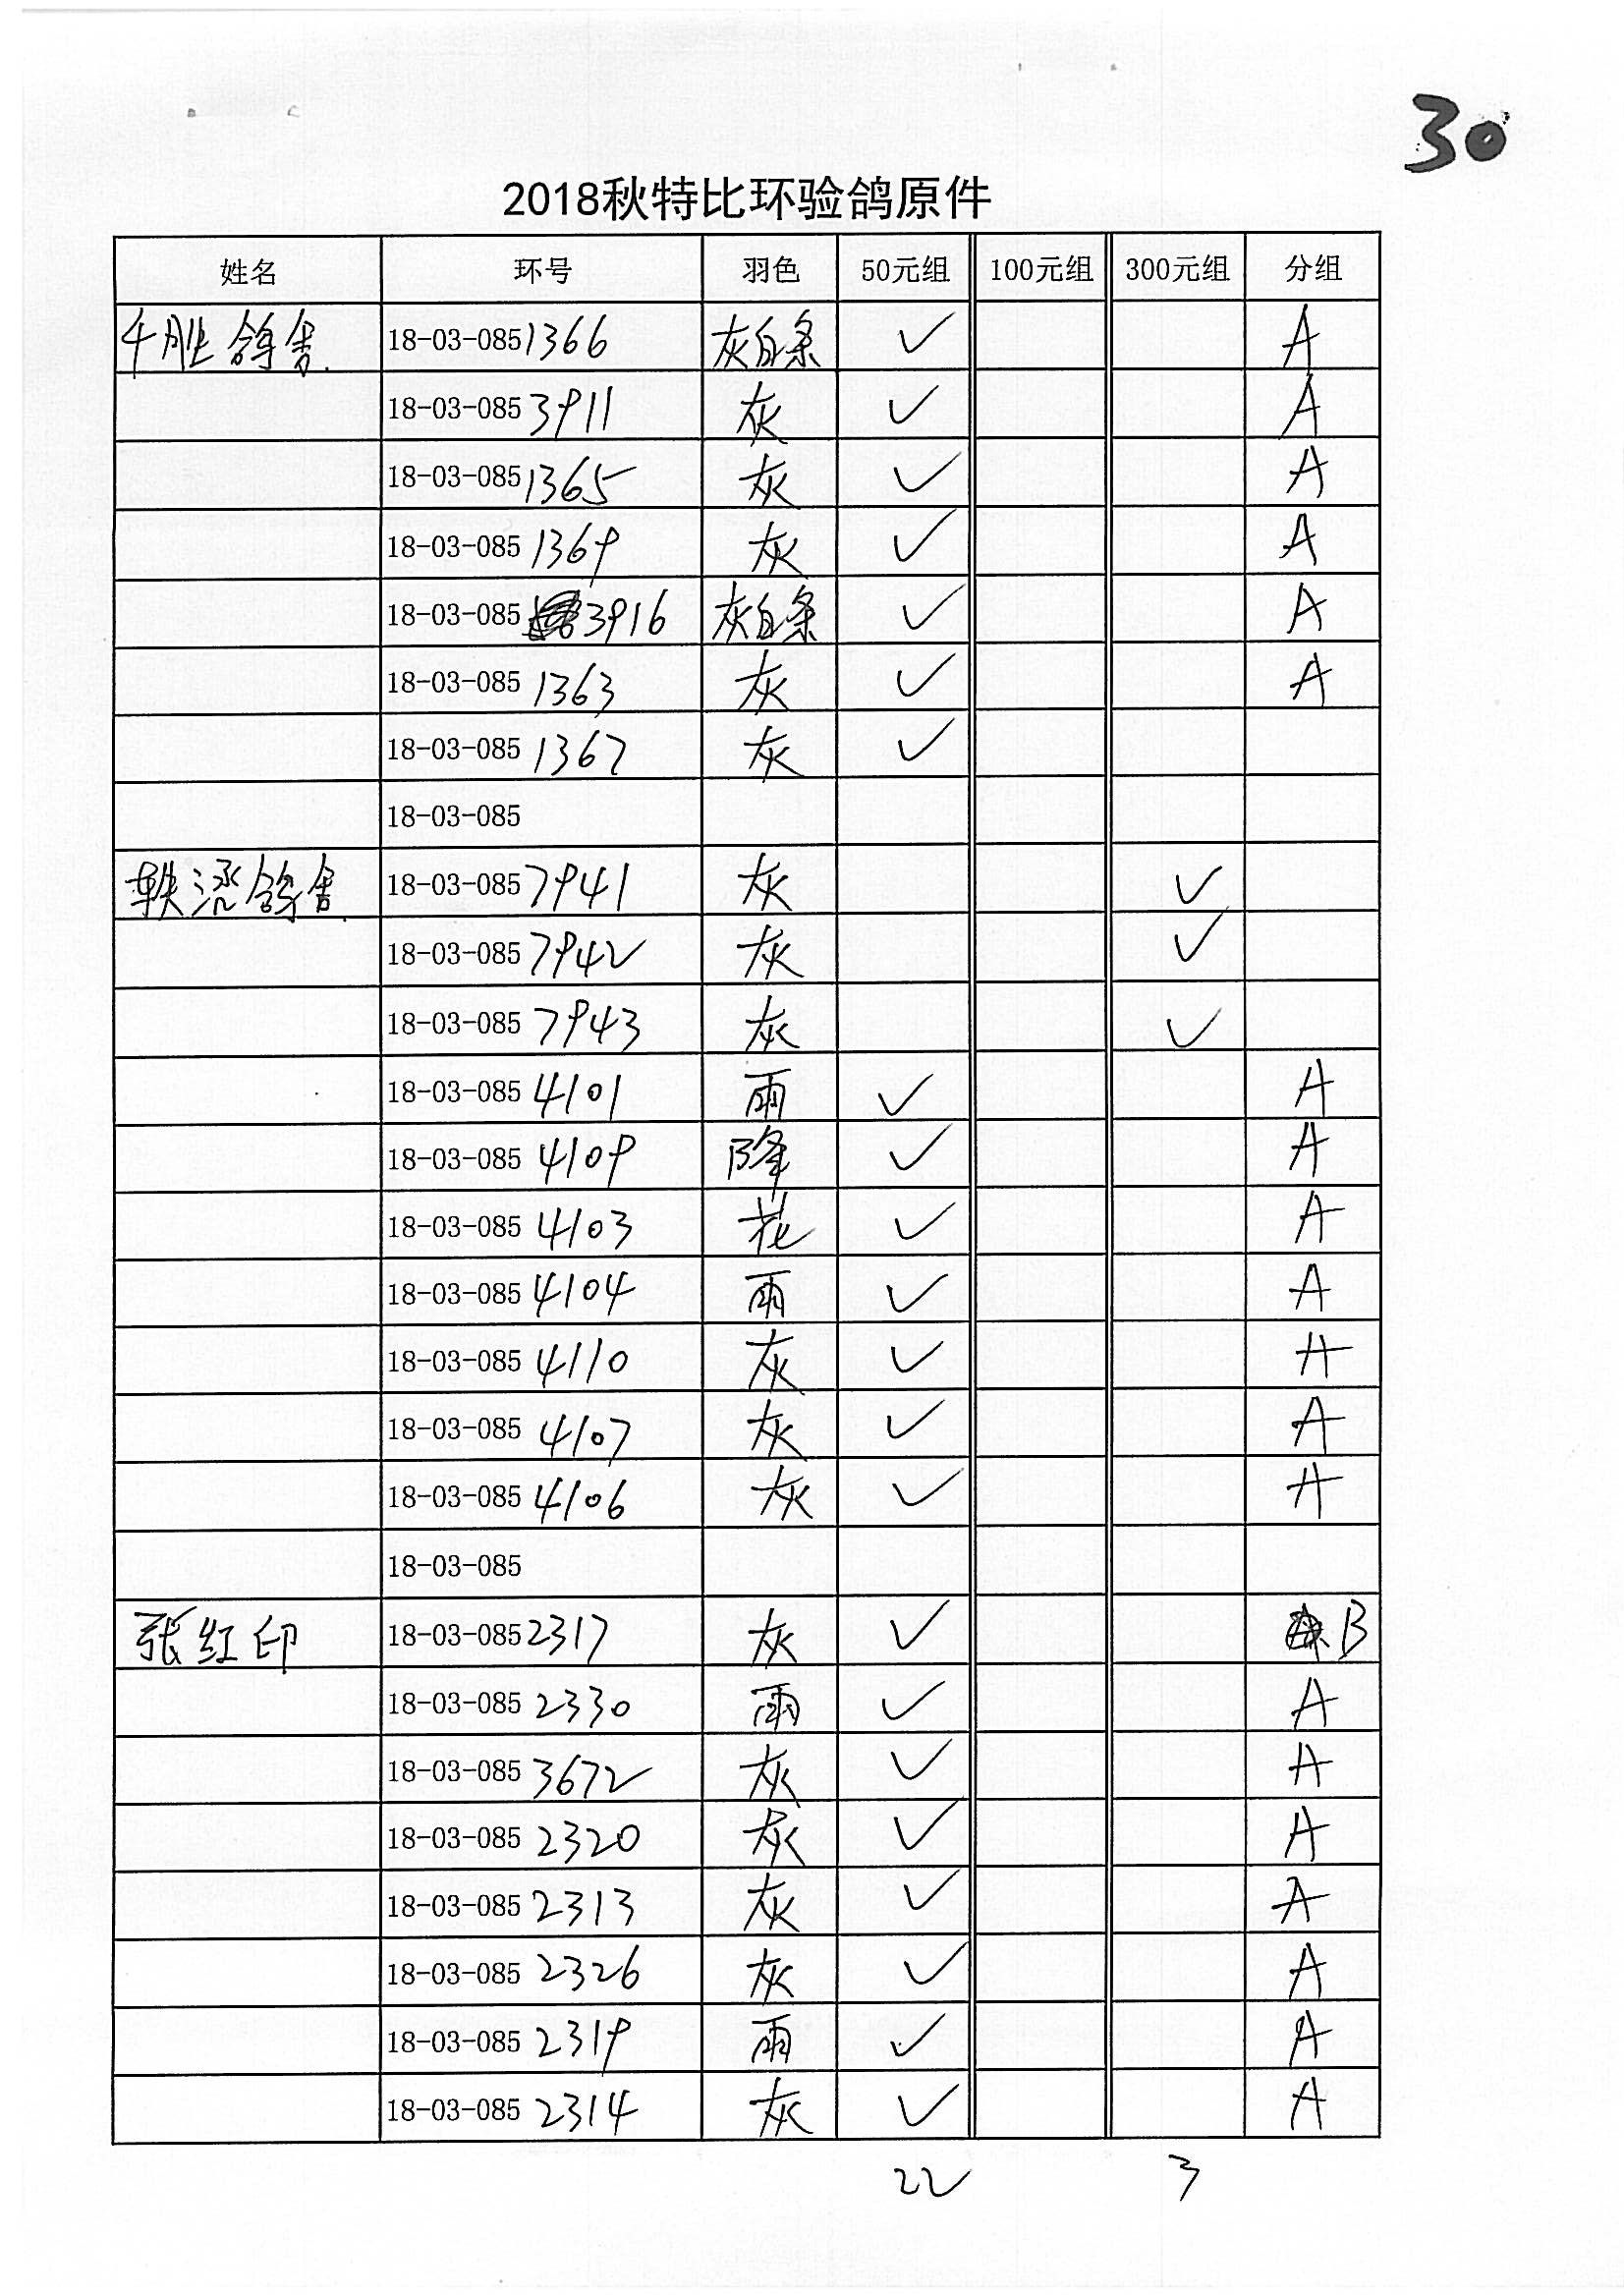 30
2018秋特比环验鸽原件
姓名 环号 羽色 50元组 100元组 300元组 分组
千胜鸽舍 18-03-0851366 灰白条 ✓ A
18-03-085 3911 灰 ✓ A
18-03-0851365 灰 ✓ A
18-03-085 1369 灰 ✓ A
18-03-085 3916 灰白条 ✓ A
18-03-085 1363 灰 ✓ A
18-03-085 1367 灰 ✓
18-03-085
轶流鸽舍 18-03-0857941 灰 ✓
18-03-0857942 灰 ✓
18-03-085 7943 灰 ✓
18-03-085 4101 雨 ✓ A
18-03-085 4109 降 ✓ A
18-03-085 4103 花 ✓ A
18-03-085 4104 雨 ✓ A
18-03-085 4110 灰 ✓ A
18-03-085 4107 灰 ✓ A
18-03-085 4106 灰 ✓ A
18-03-085
张红印 18-03-0852317 灰 ✓ B
18-03-085 2330 雨 ✓ A
18-03-085 3672 灰 ✓ A
18-03-085 2320 灰 ✓ A
18-03-085 2313 灰 ✓ A
18-03-085 2326 灰 ✓ A
18-03-085 2319 雨 ✓ A
18-03-085 2314 灰 ✓ A
22 3